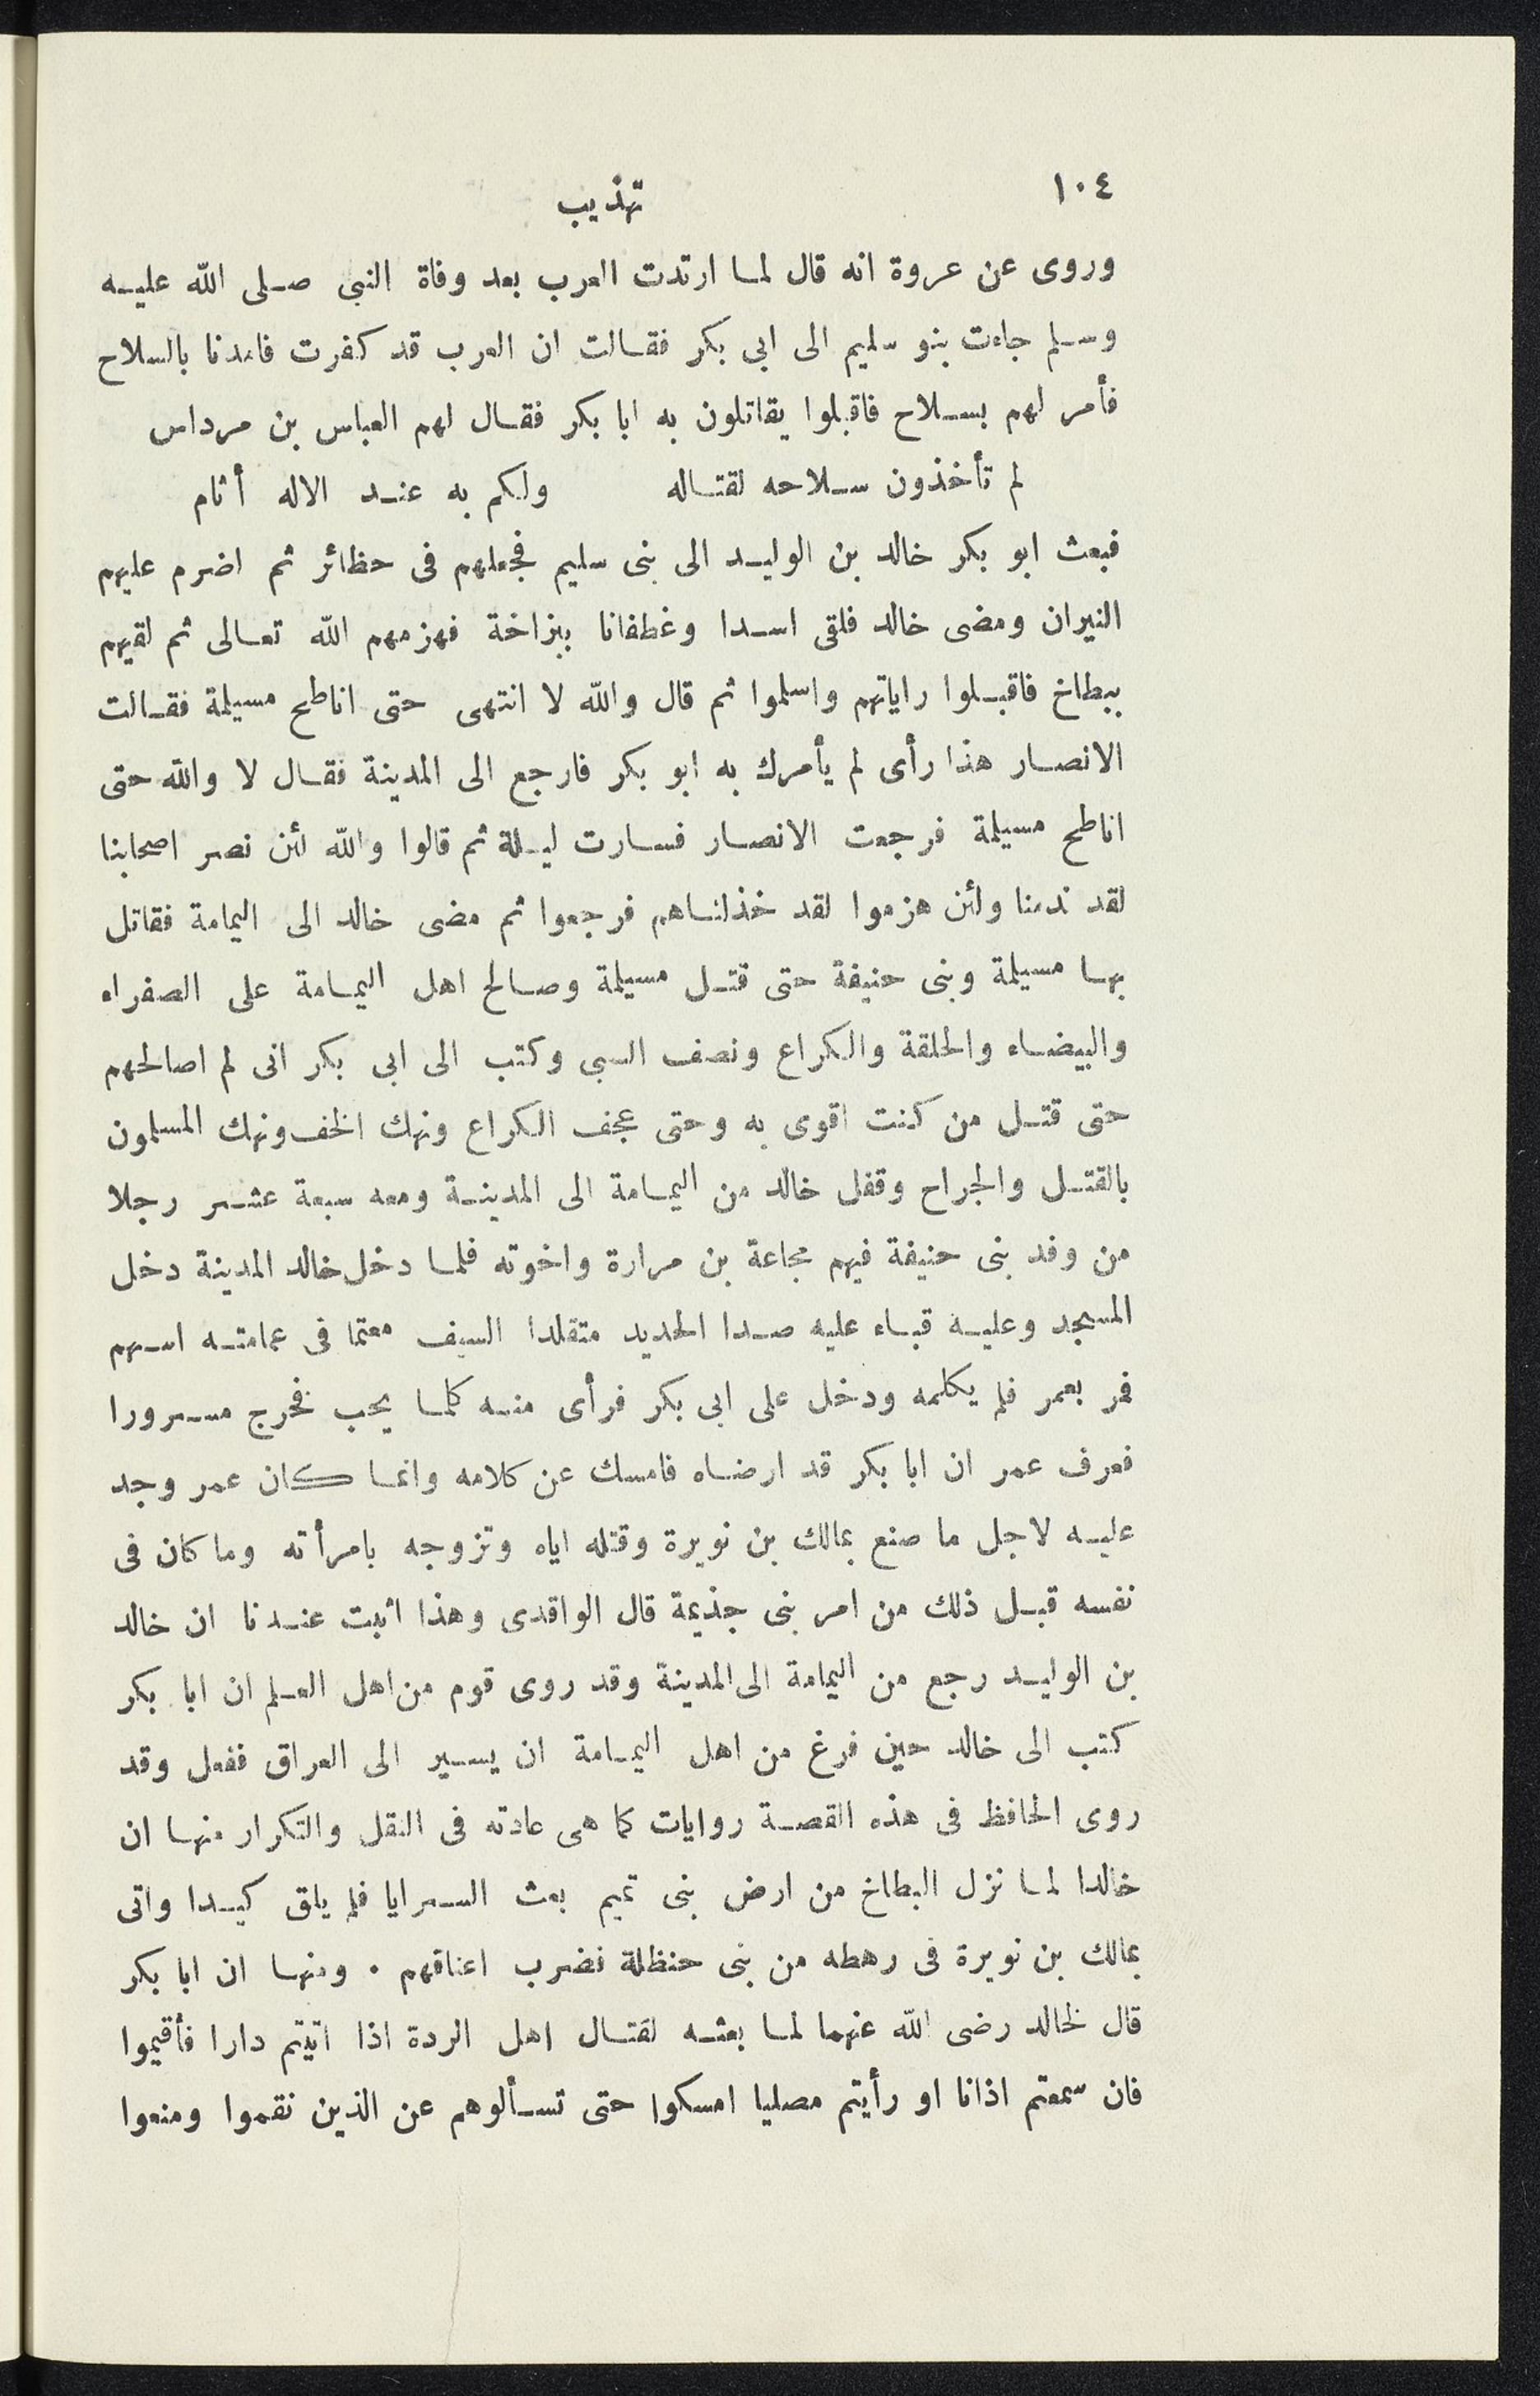 ١٠٤
تهذيب
وروى عن عروة انه قال لما ارتدت العرب بعد وفاة النبى صلى الله عليه
وسلم جاءت بنو سليم الى ابى بكر فقالت ان العرب قد كفرت فامدنا بالسلاح
فأمر لهم بسلاح فاقبلوا يقاتلون به ابا بكر فقال لهم العباس بن مرداس
لم تأخذون سلاحه لقتاله ولكم به عند الاله أثام
فبعث ابو بكر خالد بن الوليد الى بنى سليم فجعلهم فى حظائر ثم اضرم عليهم
النيران ومضى خالد فلقى اسدا وغطفانا ببزاخة فهزمهم الله تعالى ثم لقيهم
ببطاخ فاقبلوا راياتهم واسلموا ثم قال والله لا انتهى حتى اناطح مسيلمة فقالت
الانصار هذا رأى لم يأمرك به ابو بكر فارجع الى المدينة فقال لا والله حتى
اناطح مسيلمة فرجعت الانصار فسارت ليلة ثم قالوا والله لئن نصر اصحابنا
لقد ندمنا ولئن هزموا لقد خذلناهم فرجعوا ثم مضى خالد الى اليمامة فقاتل
بها مسيلمة وبنى حنيفة حتى قتل مسيلمة وصالح اهل اليمامة على الصفراء
والبيضاء والحلقة والكراع ونصف السبى وكتب الى ابى بكر انى لم اصالحهم
حتى قتل من كنت اقوى به وحتى عجف الكراع ونهك الخف ونهك المسلمون
بالقتل والجراح وقفل خالد من اليمامة الى المدينة ومعه سبعة عشر رجلا
من وفد بنى حنيفة فيهم مجاعة بن مرارة واخوته فلما دخل خالد المدينة دخل
المسجد وعليه قباء عليه صدا الحديد متقلدا السيف معتما فى عمامته اسهم
فمر بعمر فلم يكلمه ودخل على ابى بكر فرأى منه كلما يحب فخرج مسرورا
فعرف عمر ان ابا بكر قد ارضاه فامسك عن كلامه وانما كان عمر وجد
عليه لاجل ما صنع بمالك بن نويرة وقتله اياه وتزوجه بامرأته وما كان فى
نفسه قبل ذلك من امر بنى جذيمة قال الواقدى وهذا اثبت عندنا ان خالد
بن الوليد رجع من اليمامة الى المدينة وقد روى قوم من اهل العلم ان ابا بكر
كتب الى خالد حين فرغ من اهل اليمامة ان يسير الى العراق ففعل وقد
روى الحافظ فى هذه القصة روايات كما هى عادته فى النقل والتكرار منها ان
خالدا لما نزل البطاخ من ارض بنى تميم بعث السرايا فلم يلق كيدا واتى
بمالك بن نويرة فى رهطه من بنى حنظلة فضرب اعناقهم . ومنها ان ابا بكر
قال لخالد رضى الله عنهما لما بعثه لقتال اهل الردة اذا اتيتم دارا فأقيموا
فان سمعتم اذانا او رأيتم مصليا امسكوا حتى تسألوهم عن الذين نقموا ومنعوا